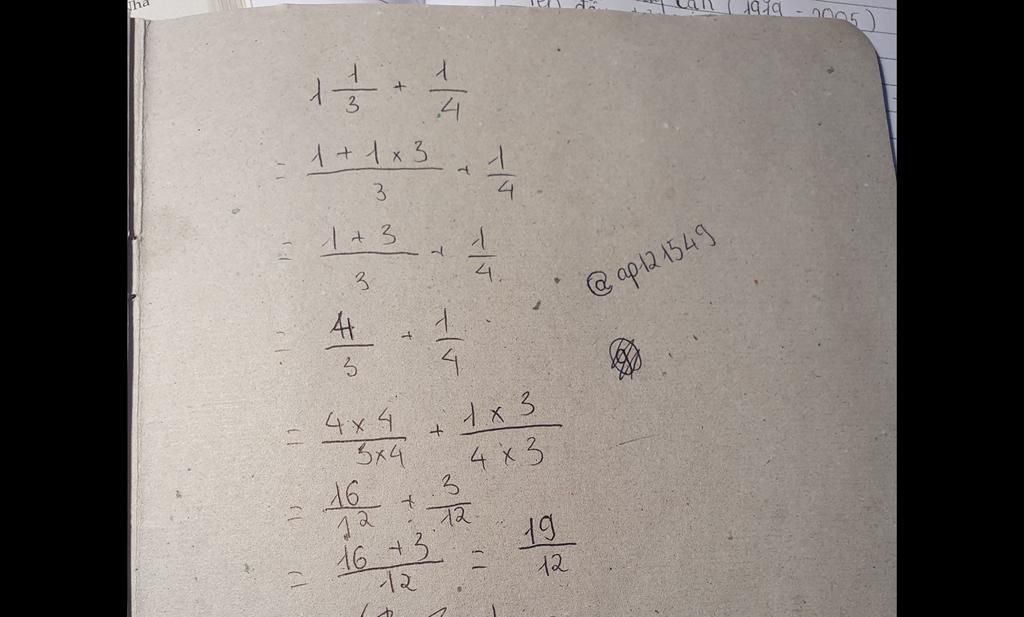 (1919 - 2005)
1 1/3 + 1/4
= (1 + 1 x 3)/3 + 1/4
= (1 + 3)/3 + 1/4
@ap121549
= 4/3 + 1/4
= (4 x 4)/(3 x 4) + (1 x 3)/(4 x 3)
= 16/12 + 3/12
= (16 + 3)/12 = 19/12